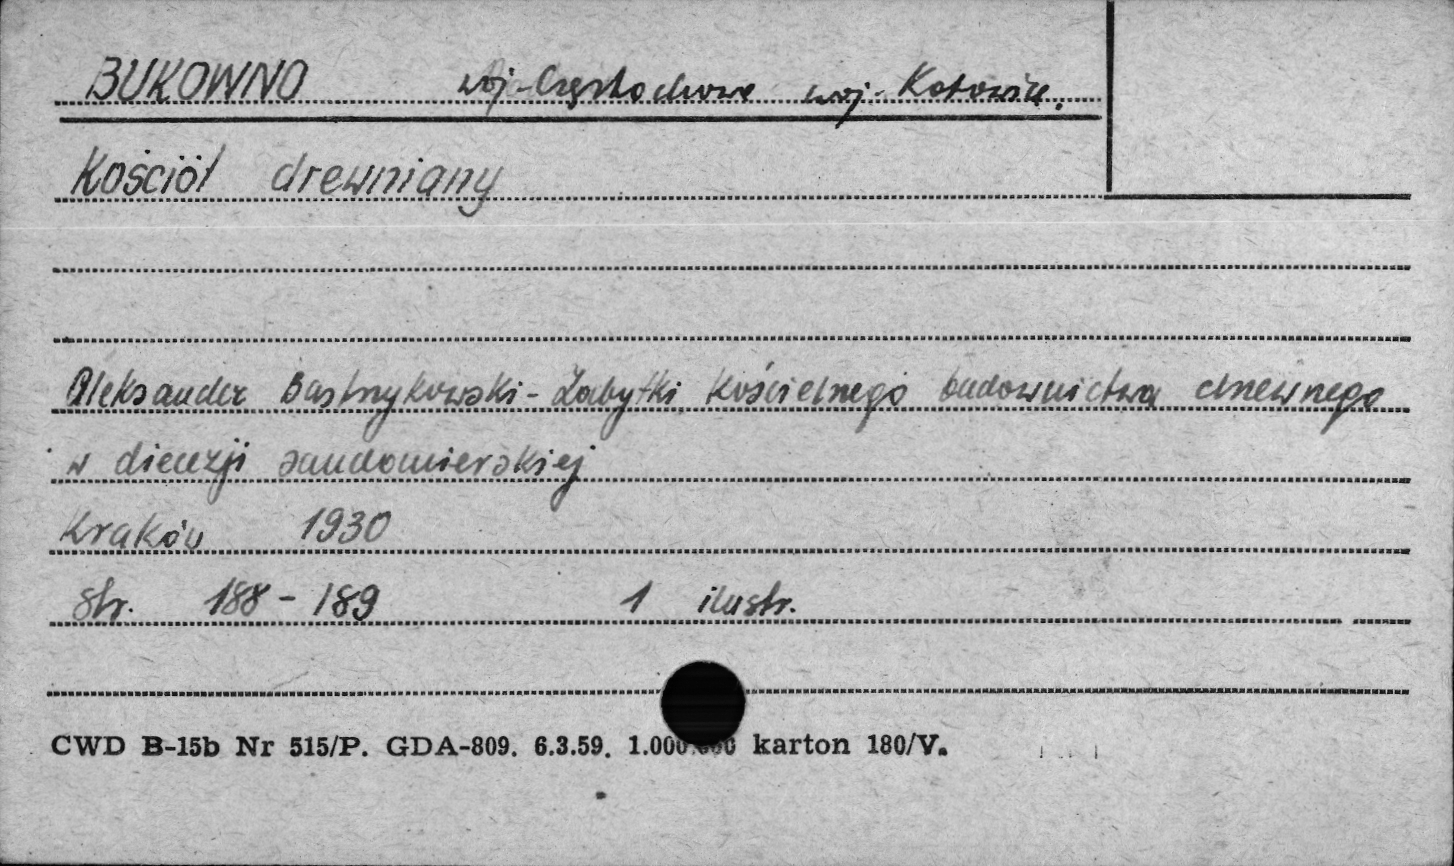 BUKOWNO woj. Częstochowa woj. Katowice.
Kościół drewniany
Aleksander Bastrzykowski - Zabytki Kościelnego budownictwa drewnego
w diecezji sandomierskiej
Kraków 1930
str. 188 - 189 1 ilustr.
CWD B-15b Nr 515/P. GDA-809. 6.3.59. 1.000.000 karton 180/V.